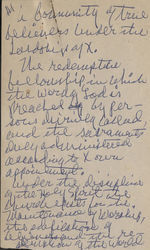 "a community of true
believers under the
Lordship of X.
The redemptive
fellowship in which
the word of God is
preached by per-
sons divinely called
and the sacraments
duly administered
according to X own
appointment.
Under the discipline
of the Holy Spirit the
church exists for the
maintenance of worship,
the edification of
believers and the re-
demption of the world